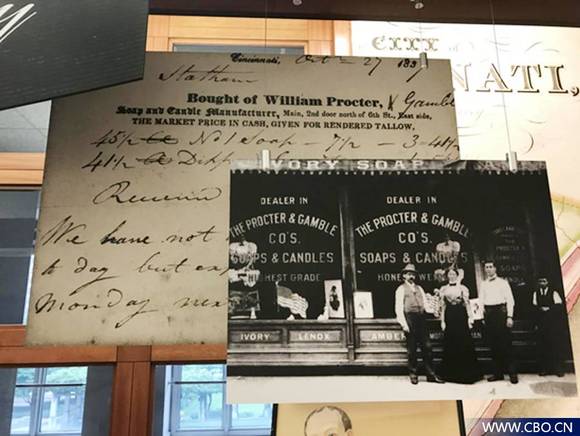 Cincinnati, Oct 27 183
Statham
Bought of William Procter, & Gamble
Soap and Candle Manufacturer, Main, 2nd door north of 6th St., East side,
THE MARKET PRICE IN CASH, GIVEN FOR RENDERED TALLOW.
45½ No 1 Soap — 7½ — 3-41
41½
We have not
to day but
Monday nex
CINCINNATI,
IVORY SOAP
DEALER IN
THE PROCTER & GAMBLE
CO'S.
SOAPS & CANDLES
HIGHEST GRADE
IVORY LENOX
DEALER IN
THE PROCTER & GAMBLE
CO'S.
SOAPS & CANDLES
HONEST WEI
AMBER
WWW.CBO.CN